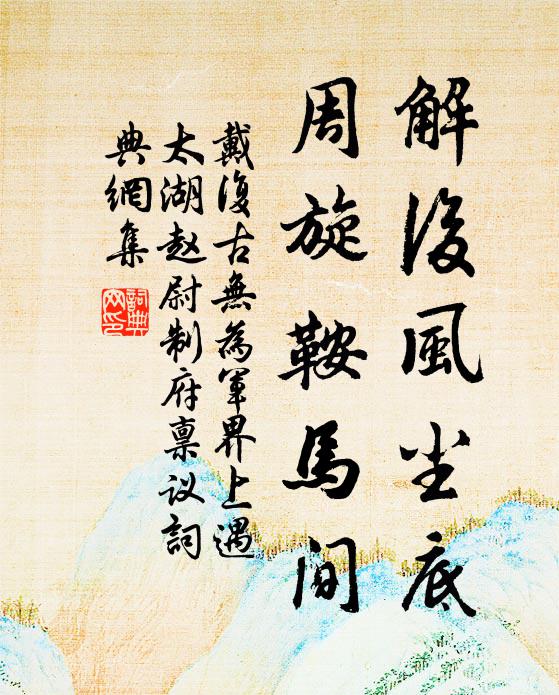 解後風尘底
周旋鞍馬间
戴復古無為軍界上遇
太湖赵尉制府禀议詞
典網集
詞典
网印